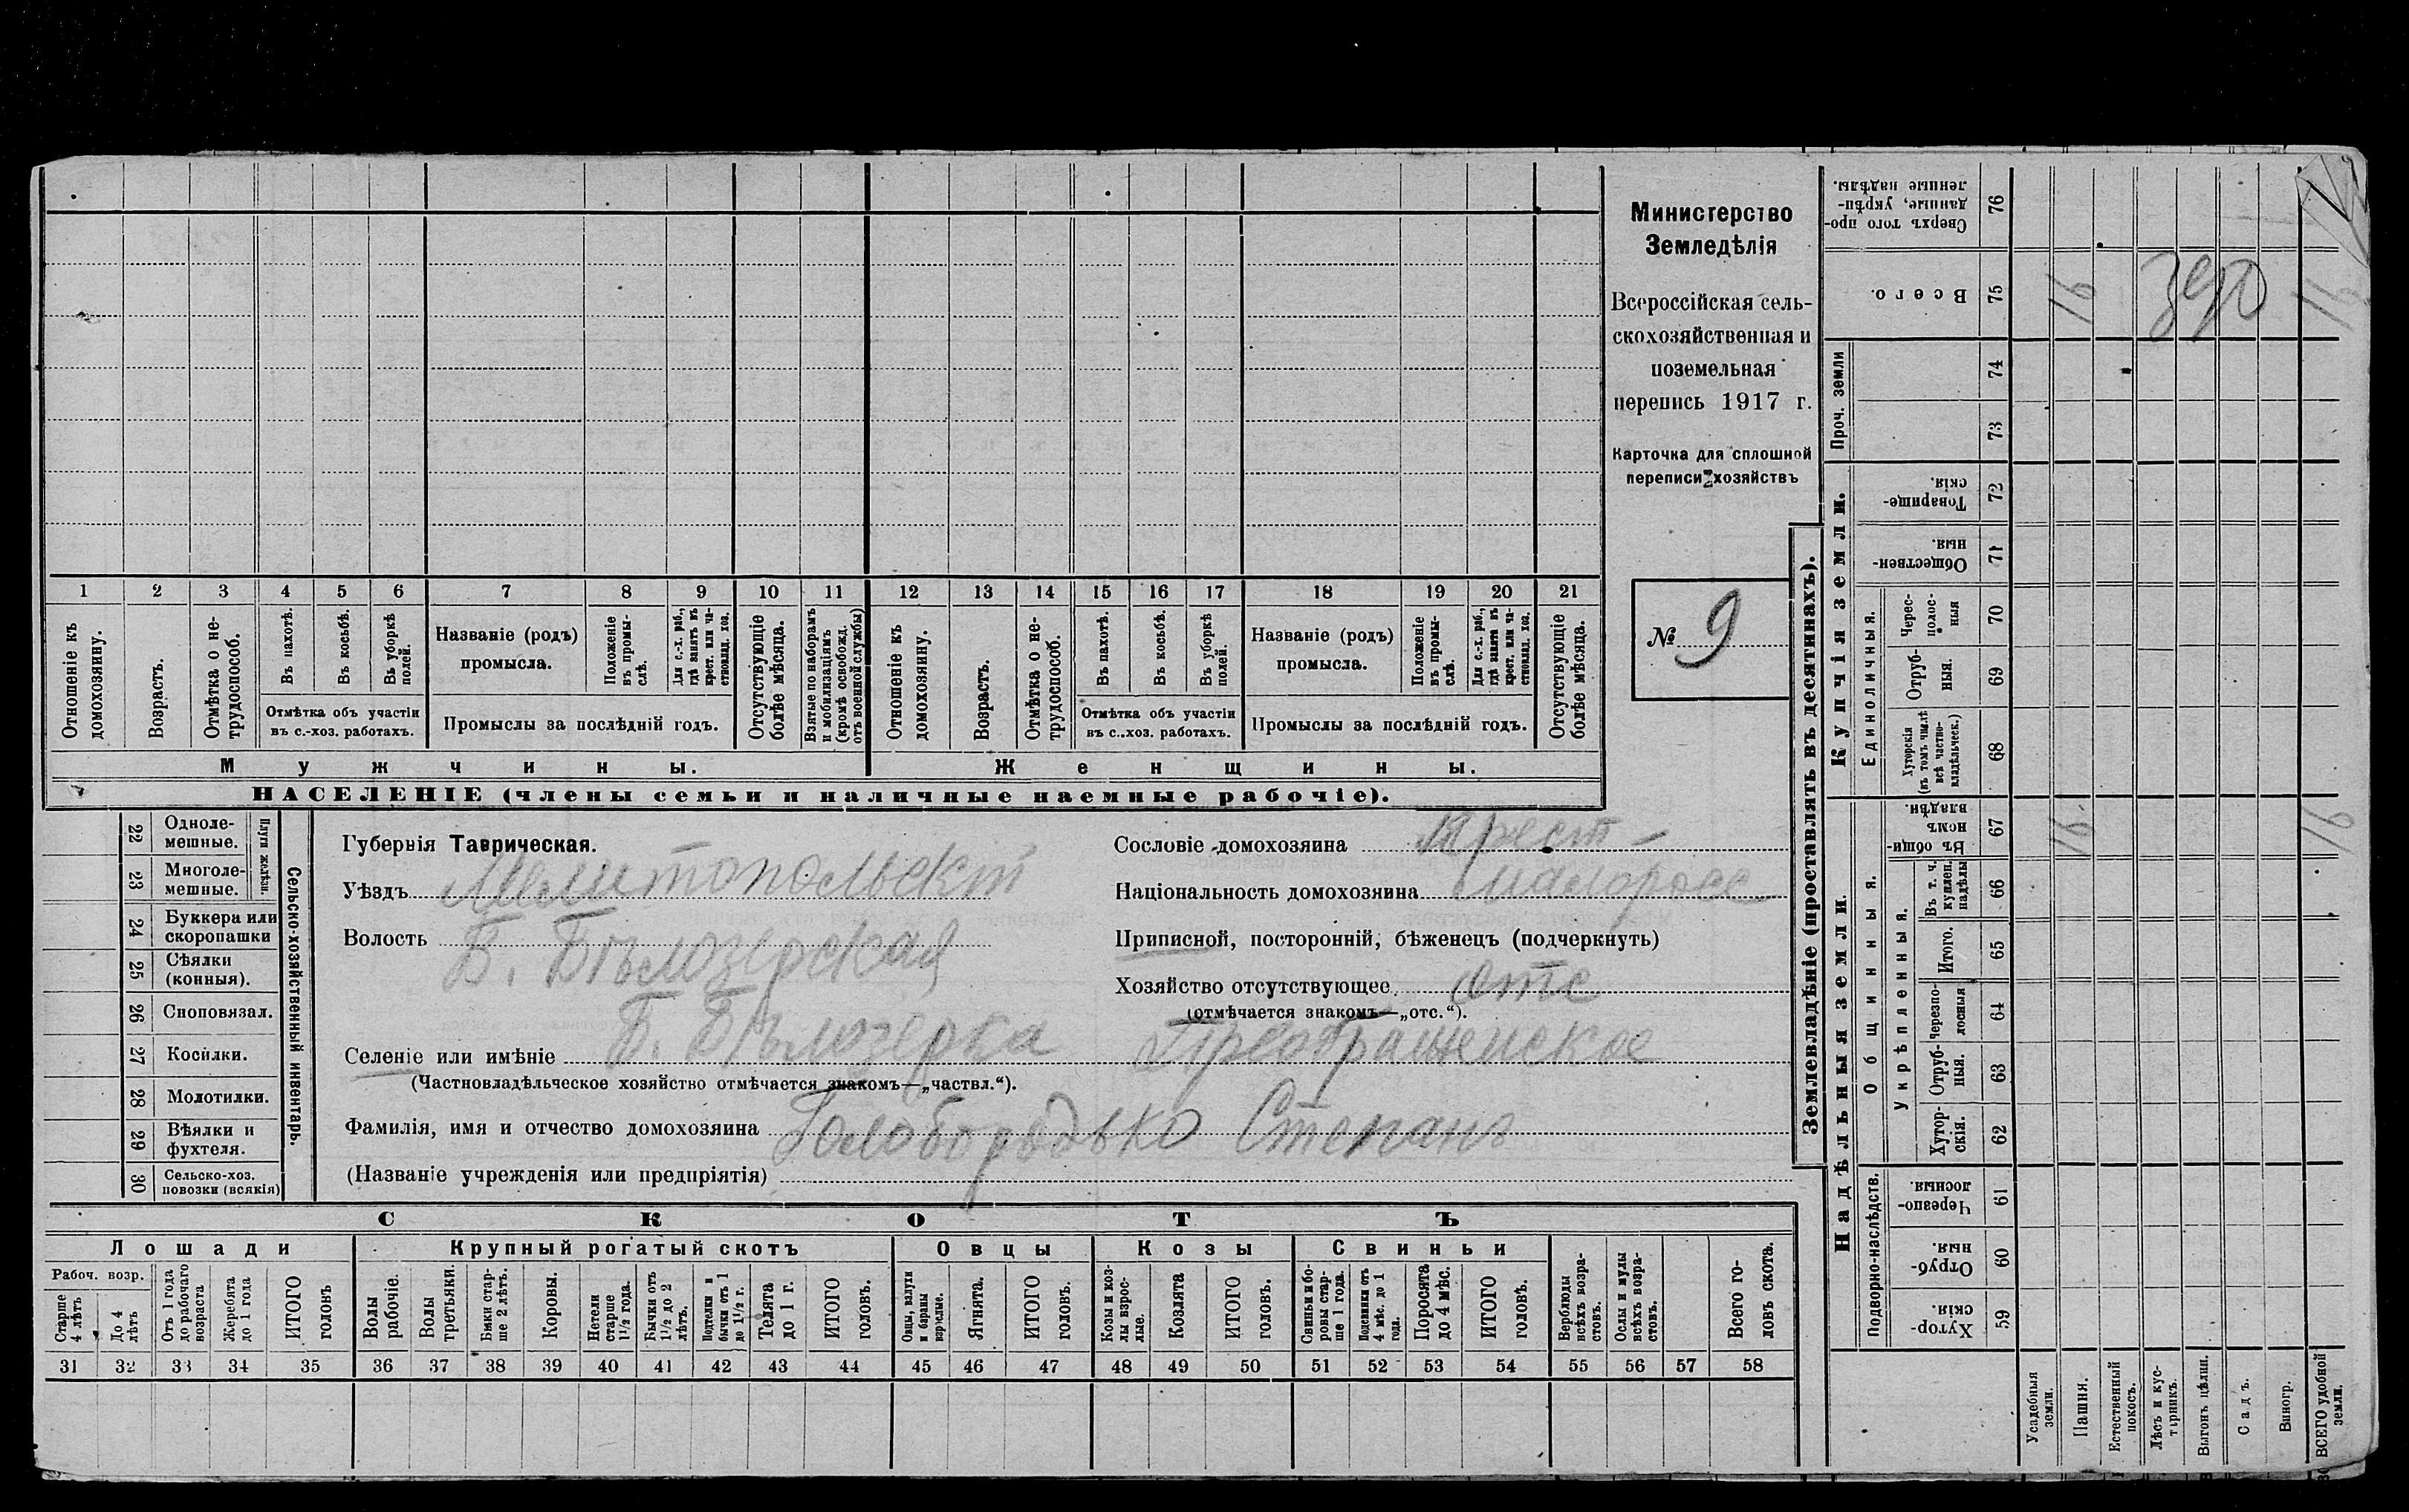 Министерство
Земледѣлія
Всероссійская сель-
скохозяйственная и
поземельная
перепись 1917 г.
Карточка для сплошной
переписи хозяйствъ
№ 9
1 2 3 4 5 6 7 8 9 10 11 12 13 14 15 16 17 18 19 20 21
Отношеніе къ домохозяину.
Возрастъ.
Отмѣтка о не-трудоспособ.
Въ пахотѣ.
Въ косьбѣ.
Въ уборкѣ полей.
Отмѣтка объ участіи
въ с.-хоз. работахъ.
Названіе (родъ)
промысла.
Положеніе въ промы-слѣ.
Для с.-х. раб., гдѣ занятъ въ крест. или ча-стновлад. хоз.
Промыслы за послѣдній годъ.
Отсутствующіе болѣе мѣсяца.
Взятые по наборамъ и мобилизаціямъ (кромѣ освобожд. отъ военной службы)
Отношеніе къ домохозяину.
Возрастъ.
Отмѣтка о не-трудоспособ.
Въ пахотѣ.
Въ косьбѣ.
Въ уборкѣ полей.
Отмѣтка объ участіи
въ с.-хоз. работахъ.
Названіе (родъ)
промысла.
Положеніе въ промы-слѣ.
Для с.-х. раб., гдѣ занята въ крест. или ча-стновлад. хоз.
Промыслы за послѣдній годъ.
Отсутствующіе болѣе мѣсяца.
Мужчины.
Женщины.
НАСЕЛЕНІЕ (члены семьи и наличные наемные рабочіе).
22 Одноле-мешные.
23 Многоле-мешные.
Плуги желѣзн.
24 Буккера или скоропашки
25 Сѣялки (конныя).
26 Сноповязал.
27 Косилки.
28 Молотилки.
29 Вѣялки и фухтеля.
30 Сельско-хоз. повозки (всякія)
Сельско-хозяйственный инвентарь.
Губернія Таврическая.
Уѣздъ Мелитопольскт
Волость Б. Бѣлозерская
Селеніе или имѣніе Б. Бѣлозерка Преображенское
(Частновладѣльческое хозяйство отмѣчается знакомъ—„частвл.“).
Фамилія, имя и отчество домохозяина Голобородько Степанъ
(Названіе учрежденія или предпріятія)
Сословіе домохозяина Крест-
Національность домохозяина малоросс
Приписной, посторонній, бѣженецъ (подчеркнуть)
Хозяйство отсутствующее отс
(отмѣчается знакомъ—„отс.“).
СКОТЪ
Лошади
Крупный рогатый скотъ
Овцы
Козы
Свиньи
Рабоч. возр.
Старше 4 лѣтъ
До 4 лѣтъ
Отъ 1 года до рабочаго возраста
Жеребята до 1 года
ИТОГО головъ
Волы рабочіе.
Волы третьяки.
Быки стар-ше 2 лѣтъ.
Коровы.
Нетели старше 1½ года.
Бычки отъ 1½ до 2 лѣтъ.
Подтелки и бычки отъ 1 до 1½ г.
Телята до 1 г.
ИТОГО головъ.
Овцы, валухи и бараны взрослые.
Ягнята.
ИТОГО головъ.
Козы и коз-лы взрос-лые.
Козлята
ИТОГО головъ.
Свиньи и бо-ровы стар-ше 1 года.
Подсвинки отъ 4 мѣс. до 1 года.
Поросята до 4 мѣс.
ИТОГО головъ.
Верблюды всѣхъ возра-стовъ.
Ослы и мулы всѣхъ возра-стовъ.
Всего го-ловъ скота.
31 32 33 34 35 36 37 38 39 40 41 42 43 44 45 46 47 48 49 50 51 52 53 54 55 56 57 58
Землевладѣніе (проставлять въ десятинахъ).
Надѣльныя земли.
Купчія земли.
Проч. земли
Подворно-наслѣдств.
Общинныя.
Укрѣпленныя.
Единоличныя.
76 Сверхъ того про-данные, укрѣп-ленные надѣлы.
75 Всего. 16 390 16
74
73
72 Товарище-скія.
71 Обществен-ныя.
70 Черес-полос-ныя
69 Отруб-ныя.
68 Хуторскія (въ томъ числѣ всѣ частно-владѣльческ.)
67 Въ общи-номъ владѣн. 16 16
66 Въ т. ч. куплен. надѣлы
65 Итого.
64 Черезпо-лосныя
63 Отруб-ныя.
62 Хутор-скія.
61 Черезпо-лосныя.
60 Отруб-ныя.
59 Хутор-скія.
Усадебныя земли.
Пашня.
Естественный покосъ.
Лѣсъ и кус-тарникъ.
Выгонъ цѣлин.
Садъ.
Виногр.
ВСЕГО удобной земли.